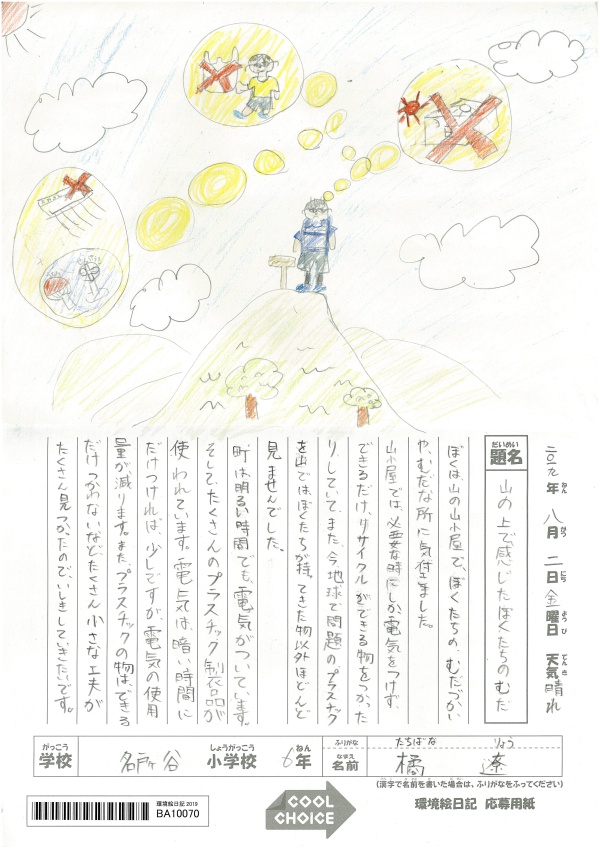 二〇一九年 八月 二日 金曜日 天気 晴れ
題名 山の上で感じたぼくたちのむだ
ぼくは、山の山小屋で、ぼくたちの、むだづかい
や、むだな所に気付きました。
山小屋では、必要な時にしか電気をつけず
できるだけ、リサイクルができる物をつかった
り、していて、また、今地球で問題のプラスチック
を山では、ぼくたちが持ってきた物以外ほどんど
見ませんでした。
町は、明るい時間でも、電気がついています。
そして、たくさんのプラスチック製品が
使われています。電気は、暗い時間に
だけつければ、少しですが、電気の使用
量が減ります。また、プラスチックの物は、できる
だけつかわないなどたくさん小さな工夫が
たくさん見つかたので、いしきしていきたいです。
がっこう しょうがっこう ねん
学校 名戸ヶ谷 小学校 6年
ふりがな たちばな りょう
名前 橘 遼
(漢字で名前を書いた場合は、ふりがなをふってください)
環境絵日記 2019
BA10070
COOL
CHOICE
環境絵日記 応募用紙